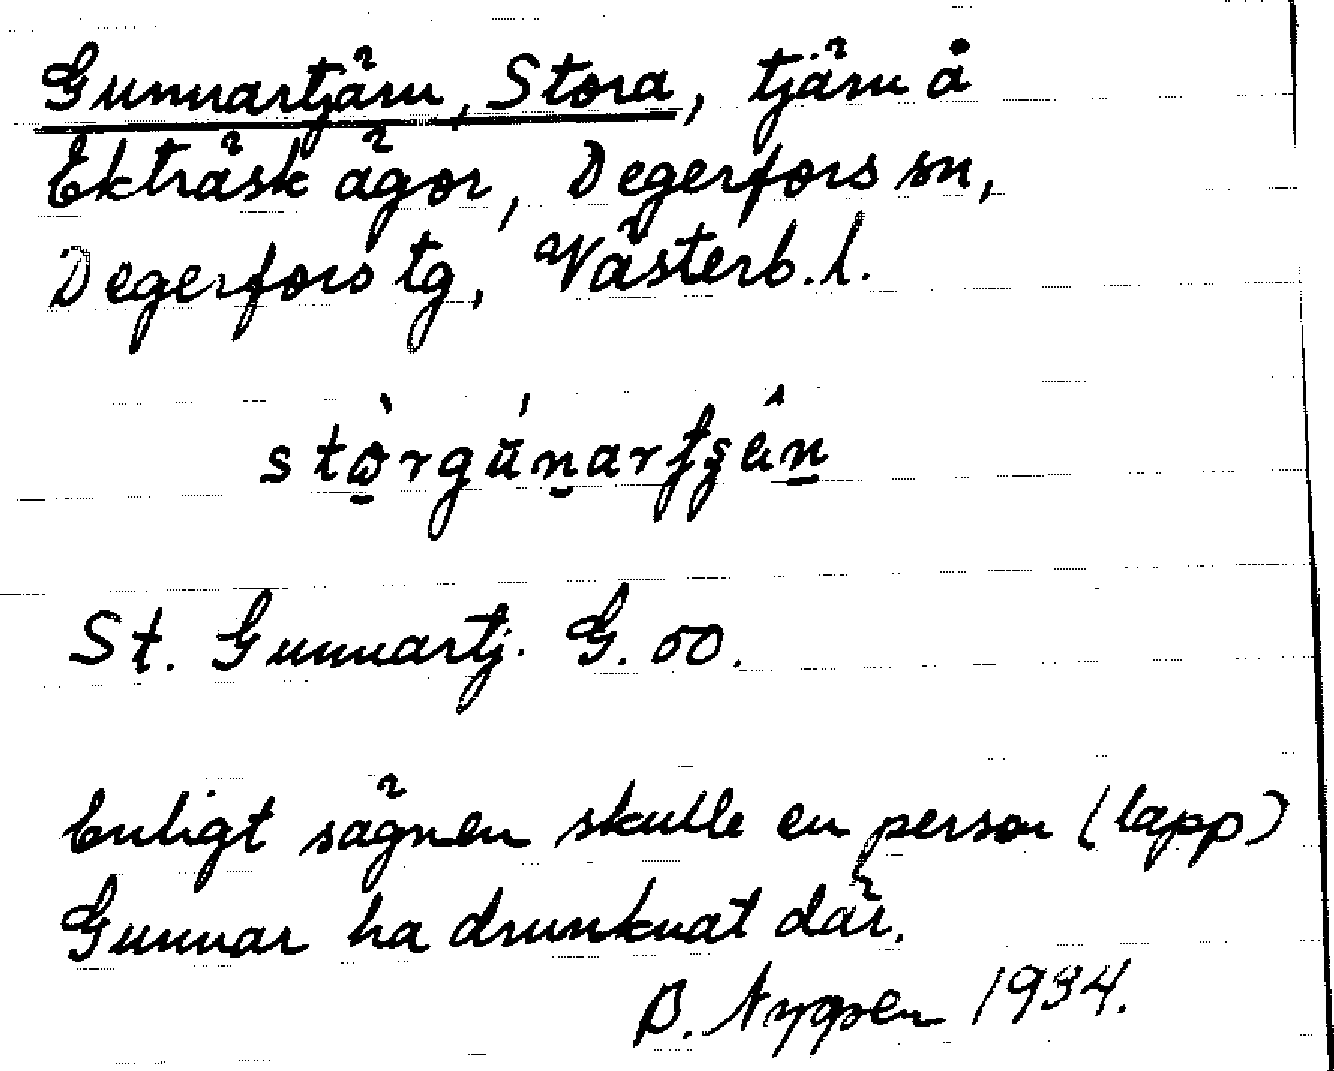 Gunnartjärn, Stora, tjärn å
Ekträsk ägor, Degerfors sn,
Degerfors tg, Västerb. l.
stòrgúnartʂân
St. Gunnartj. G. 50.
Enligt sägnen skulle en person (lapp)
Gunnar ha drunknat där.
B. Nygren 1934.